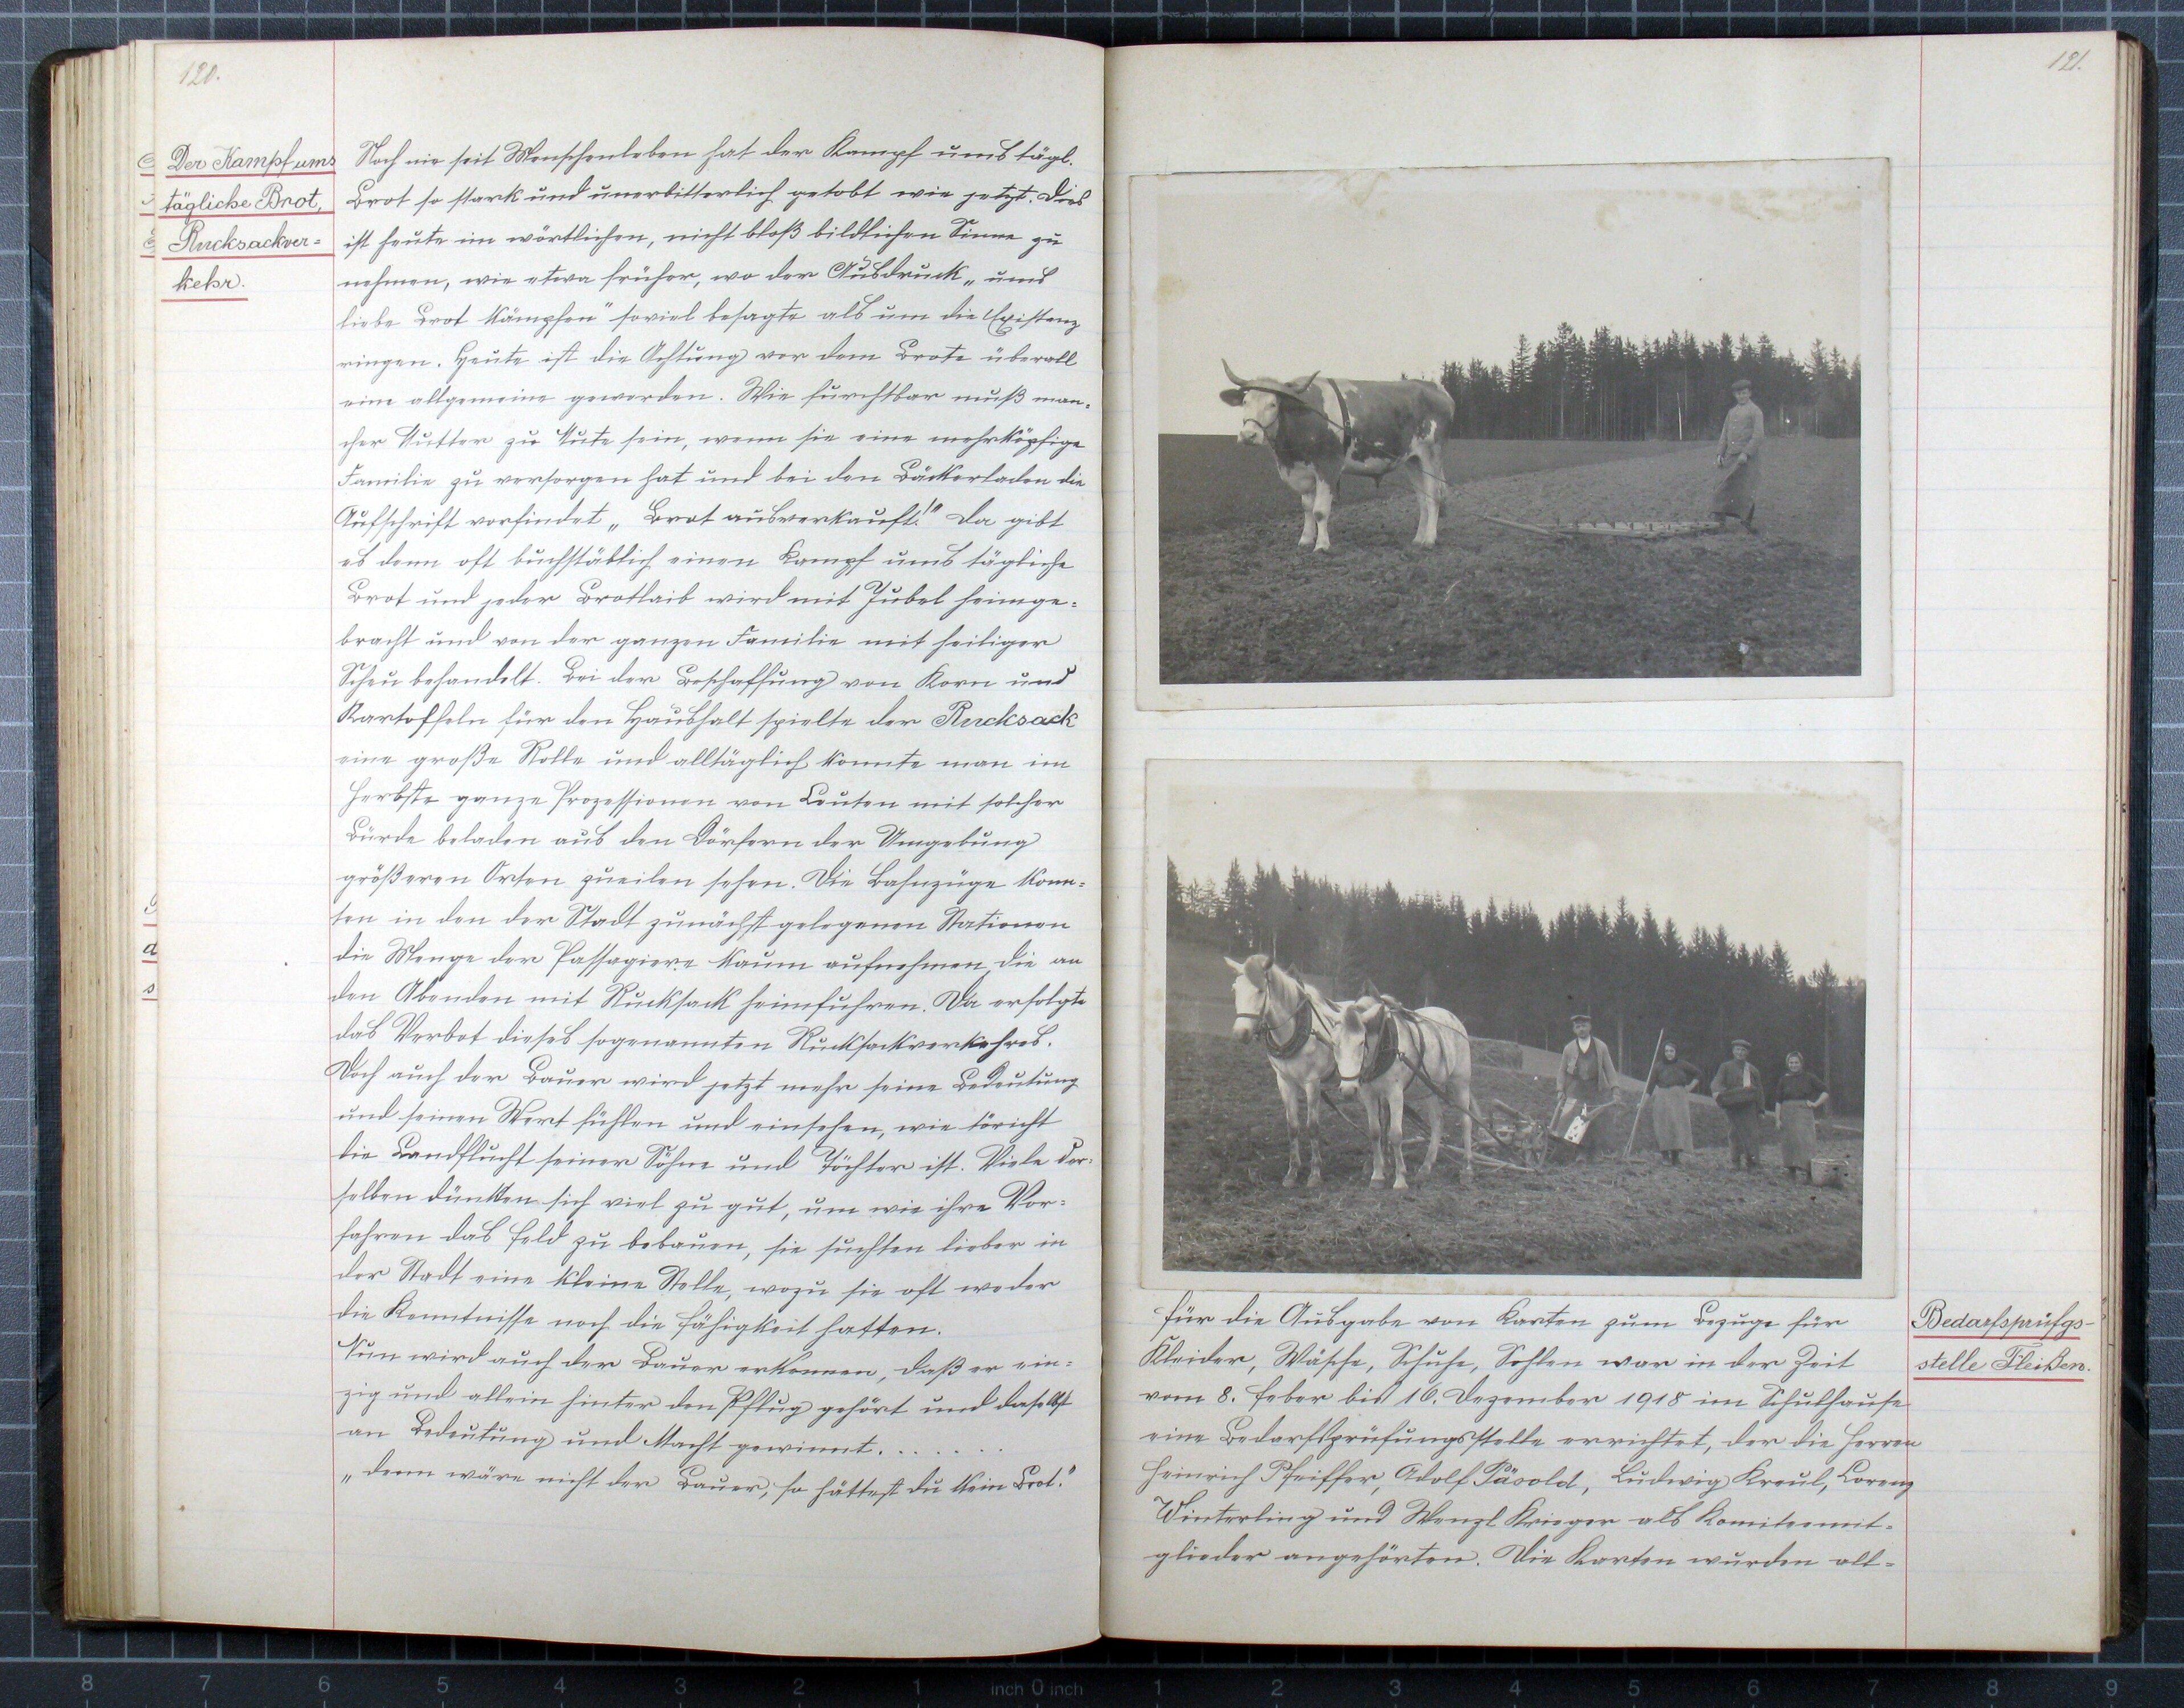 120.
Der Kampf ums
tägliche Brot,
Rucksackver=
kehr.
Noch nie seit Menschenleben hat der Kampf ums tägl.
Brot so stark und unerbitterlich getobt wie jetzt. Dies
ist heute im wörtlichen, nicht bloß bildlichen Sinne zu
nehmen, wie etwa früher, wo der Ausdruck „ums
liebe Brot kämpfen" soviel besagte als um die Existenz
ringen. Heute ist die Achtung vor dem Brote überall
eine allgemeine geworden. Wie furchtbar muß man=
cher Mutter zu Mute sein, wenn sie eine mehrköpfige
Familie zu versorgen hat und bei den Bäckerladen die
Aufschrift vorfindet „Brot ausverkauft!" Da gibt
es denn oft buchstäblich einen Kampf ums tägliche
Brot und jeder Brotlaib wird mit Jubel heimge=
bracht und von der ganzen Familie mit heiliger
Scheu behandelt. Bei der Beschaffung von Korn und
Kartoffeln für den Haushalt spielte der Rucksack
eine große Rolle und alltäglich konnte man im
Herbste ganze Prozessionen von Leuten mit solcher
Bürde beladen aus den Dörfern der Umgebung
größeren Orten zueilen sehen. Die Bahnzüge konn=
ten in den der Stadt zunächst gelegenen Stationen
die Menge der Passagiere kaum aufnehmen, die an
den Abenden mit Rucksack heimfuhren. Da erfolgte
das Verbot dieses sogenannten Rucksackverkehres.
Doch auch der Bauer wird jetzt mehr seine Bedeutung
und seinen Wert fühlen und einsehen, wie töricht
die Landflucht seiner Söhne und Töchter ist. Viele der=
selben dünkten sich viel zu gut, um wie ihre Vor=
fahren das Feld zu bebauen, sie suchten lieber in
der Stadt eine kleine Stelle, wozu sie oft weder
die Kenntnisse noch die Fähigkeit hatten.
Nun wird auch der Bauer erkennen, daß er ein=
zig und allein hinter den Pflug gehört und daselbst
an Bedeutung und Macht gewinnt.......
„denn wäre nicht der Bauer, so hättest du kein Brot."
121.
Für die Ausgabe von Karten zum Bezuge für
Kleider, Wäsche, Schuhe, Sohlen war in der Zeit
vom 8. Feber bis 16. Dezember 1918 im Schulhause
eine Bedarfsprüfungsstelle errichtet, der die Herren
Heinrich Pfeiffer, Adolf Päsold, Ludwig Kreul, Lorenz
Winterling und Wenzl Krieger als Komiteemit=
glieder angehörten. Die Karten wurden all=
Bedarfsprüfgs-
stelle Fleißen.
8 7 6 5 4 3 2 1 inch 0 inch 1 2 3 4 5 6 7 8 9